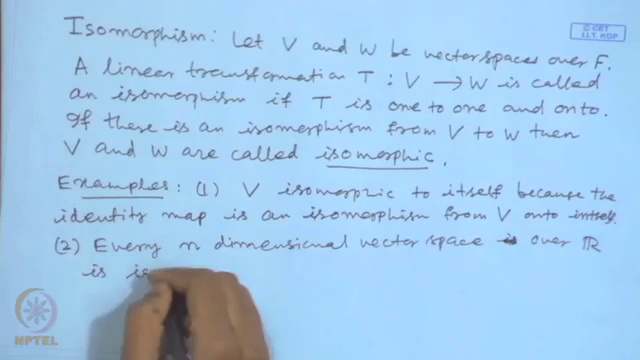 © CET
I.I.T. KGP
Isomorphism: Let V and W be vector spaces over F.
A linear transformation T : V → W is called
an isomorphism if T is one to one and onto.
If there is an isomorphism from V to W then
V and W are called isomorphic.
Examples: (1) V isomorphic to itself because the
identity map is an isomorphism from V onto intself.
(2) Every n dimensional vector space over ℝ
is is
NPTEL